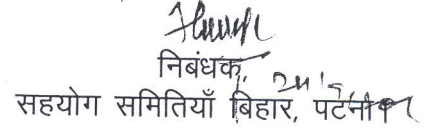 निबंधक,
सहयोग समितियाँ बिहार, पटना